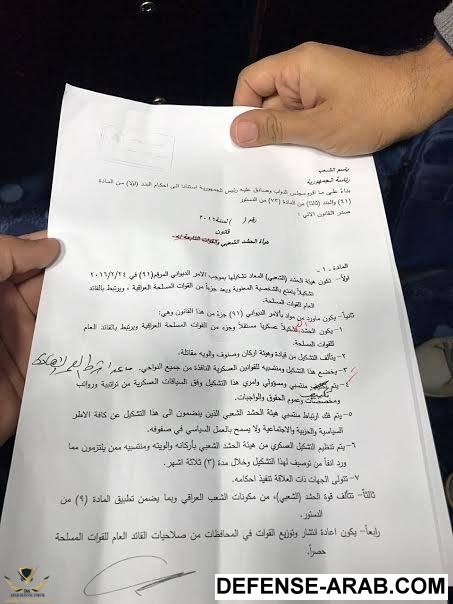 باسم الشعب
رئاسة الجمهورية
بناءً على ما اقره مجلس النواب وصادق عليه رئيس الجمهورية استنادا الى احكام البند (اولا) من المادة
(٦١) والبند (ثالثا) من المادة (٧٣) من الدستور
صدر القانون الاتي :
رقم ( ) لسنة ٢٠١٦
قانون
هيأة الحشد الشعبي والقوات التابعة له
المادة - ١ -
اولاً- تكون هيئة الحشد (الشعبي) المعاد تشكيلها بموجب الامر الديواني المرقم (٩١) في ٢٠١٦/٢/٢٤
تشكيلاً يتمتع بالشخصية المعنوية ويعد جزءاً من القوات المسلحة العراقية ، ويرتبط بالقائد
العام للقوات المسلحة.
ثانياً- يكون ماورد من مواد بالأمر الديواني (٩١) جزء من هذا القانون وهي:
١- يكون الحشد تشكيلاً عسكريا مستقلاً وجزء من القوات المسلحة العراقية ويرتبط بالقائد العام
للقوات المسلحة.
٢- يتألف التشكيل من قيادة وهيئة اركان وصنوف والويه مقاتلة.
٣- يخضع هذا التشكيل ومنتسبيه للقوانين العسكرية النافذة من جميع النواحي.
٤- يتم منتسبي ومسؤولي وآمري هذا التشكيل وفق السياقات العسكرية من تراتبية ورواتب
ومخصصات وعموم الحقوق والواجبات.
٥- يتم فك ارتباط منتسبي هيئة الحشد الشعبي الذين ينضمون الى هذا التشكيل عن كافة الاطر
السياسية والحزبية والاجتماعية ولا يسمح بالعمل السياسي في صفوفه.
٦- يتم تنظيم التشكيل العسكري من هيئة الحشد الشعبي بأركانه والويته ومنتسبيه ممن يلتزمون بما
ورد انفاً من توصيف لهذا التشكيل وخلال مدة (٣) ثلاثة اشهر.
٧- تتولى الجهات ذات العلاقة تنفيذ احكامه.
ثالثاً- تتألف قوة الحشد (الشعبي)، من مكونات الشعب العراقي وبما يضمن تطبيق المادة (٩) من
الدستور.
رابعاً- يكون اعادة انتشار وتوزيع القوات في المحافظات من صلاحيات القائد العام للقوات المسلحة
حصراً.
DEFENSE-ARAB.COM